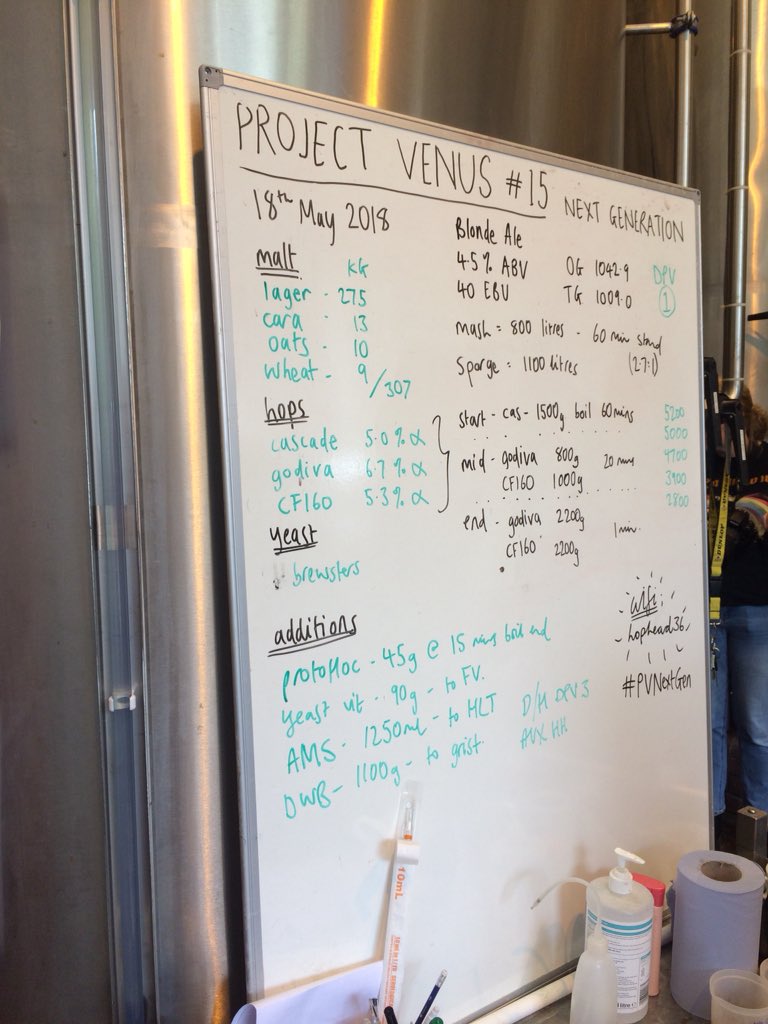 PROJECT VENUS #15
NEXT GENERATION
18th May 2018
malt KG
lager - 275
cara 13
oats - 10
wheat - 9 /307
hops
cascade 5.0 % α
godiva 6.7 % α
CF160 5.3 % α
yeast
brewsters
additions
protofloc - 45g @ 15 mins boil end
yeast vit - 90g - to FV.
AMS - 1250ml - to HLT
DWB - 1100g - to grist.
D/H DPV 3
Blonde Ale
4.5 % ABV OG 1042.9
40 EBU TG 1009.0
DPV
1
mash = 800 litres - 60 min stand
Sparge = 1100 litres (2.7:1)
start - cas - 1500g boil 60mins 5200
5000
mid - godiva 800g 20 mins 4700
CF160 1000g 3900
2800
end - godiva 2200g 1 min.
CF160 2200g
wifi
hophead36
#PVNextGen
10mL